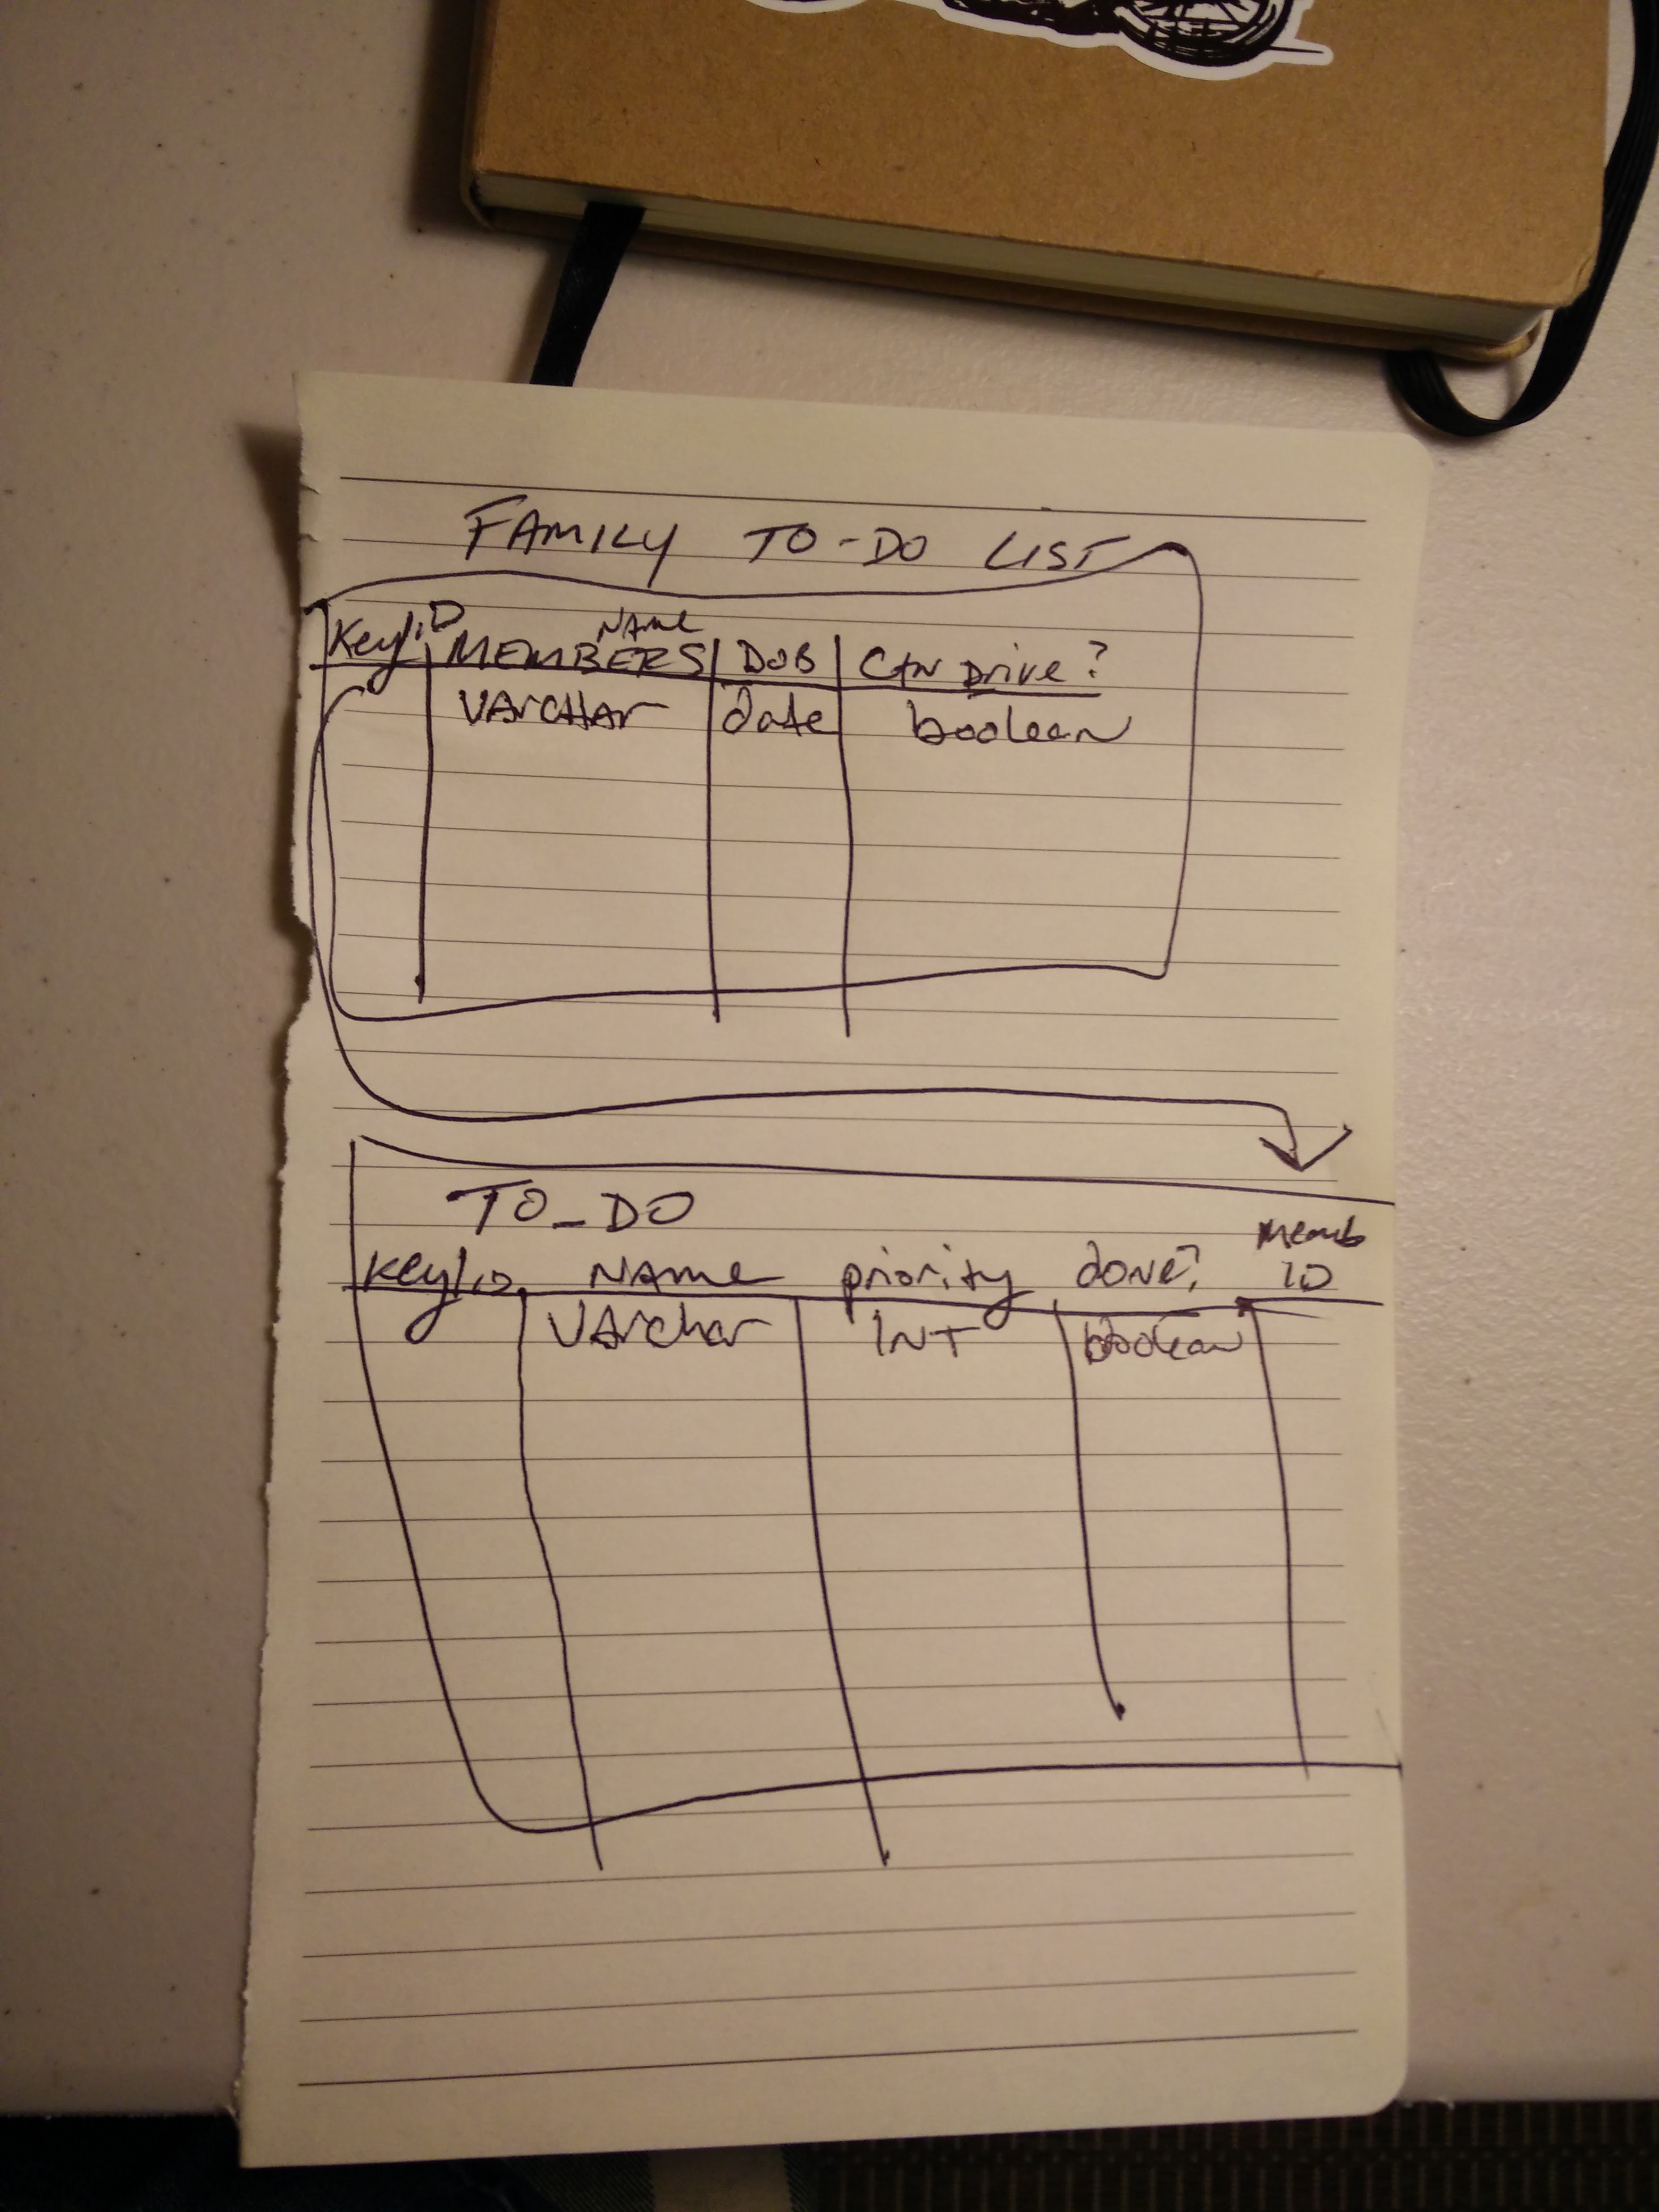 FAMILY TO-DO LIST
Key/ID MEMBERS NAME DOB CAN Drive?
VARCHAR date boolean
TO_DO
Key/ID NAME priority done? Memb ID
VArchar INT boolean